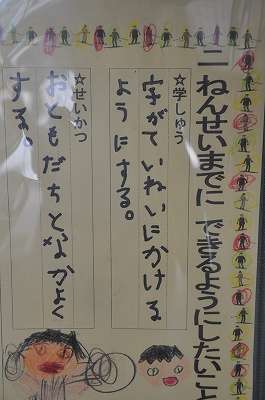 二ねんせいまでに できるようにしたいこと
☆学しゅう
字がていねいにかける
ようにする。
☆せいかつ
おともだちとなかよく
する。